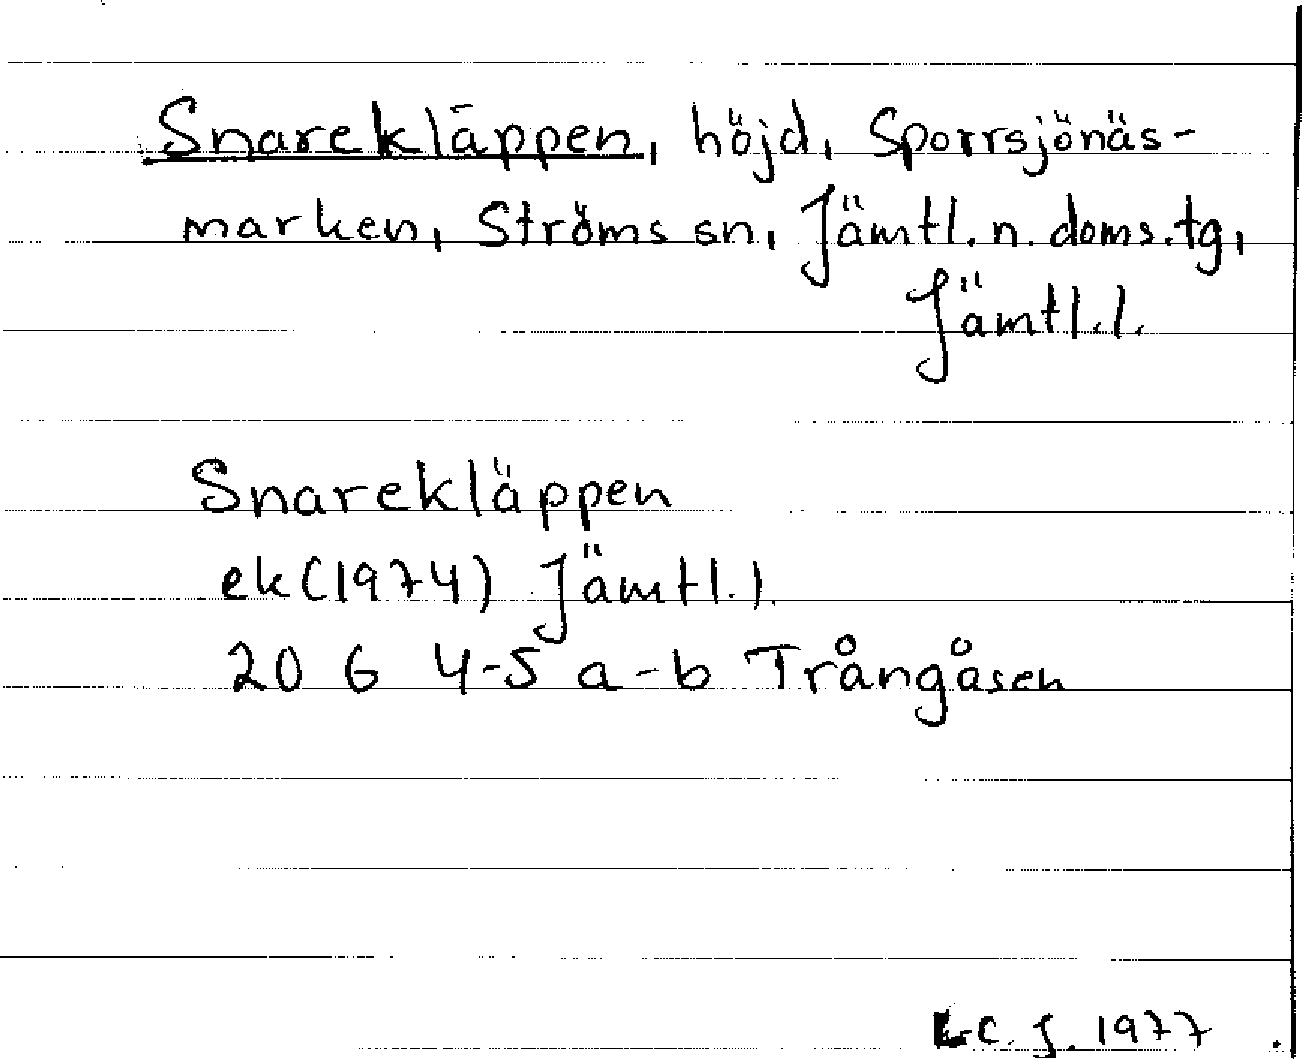 Snarekläppen, höjd, Sporrsjönäs-
marken, Ströms sn, Jämtl. n. doms. tg,
Jämtl. l.
Snarekläppen
ek (1974) Jämtl. l.
20 G 4-5 a-b Trångåsen
1977